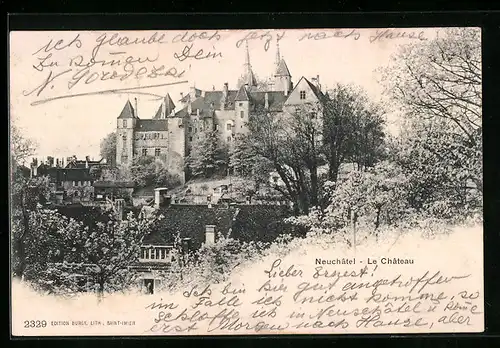 ich glaube doch jetzt nach Hause
zu kommen Dein
Neuchâtel - Le Château.
Lieber Ernest!
Ich bin hier gut angetroffen
im Falle ich nicht komme, so
schlaffe ich in Neuschâtel u komme
erst Morgen nach Hause, aber
2329 EDITION BURGY, LITH., SAINT-IMIER